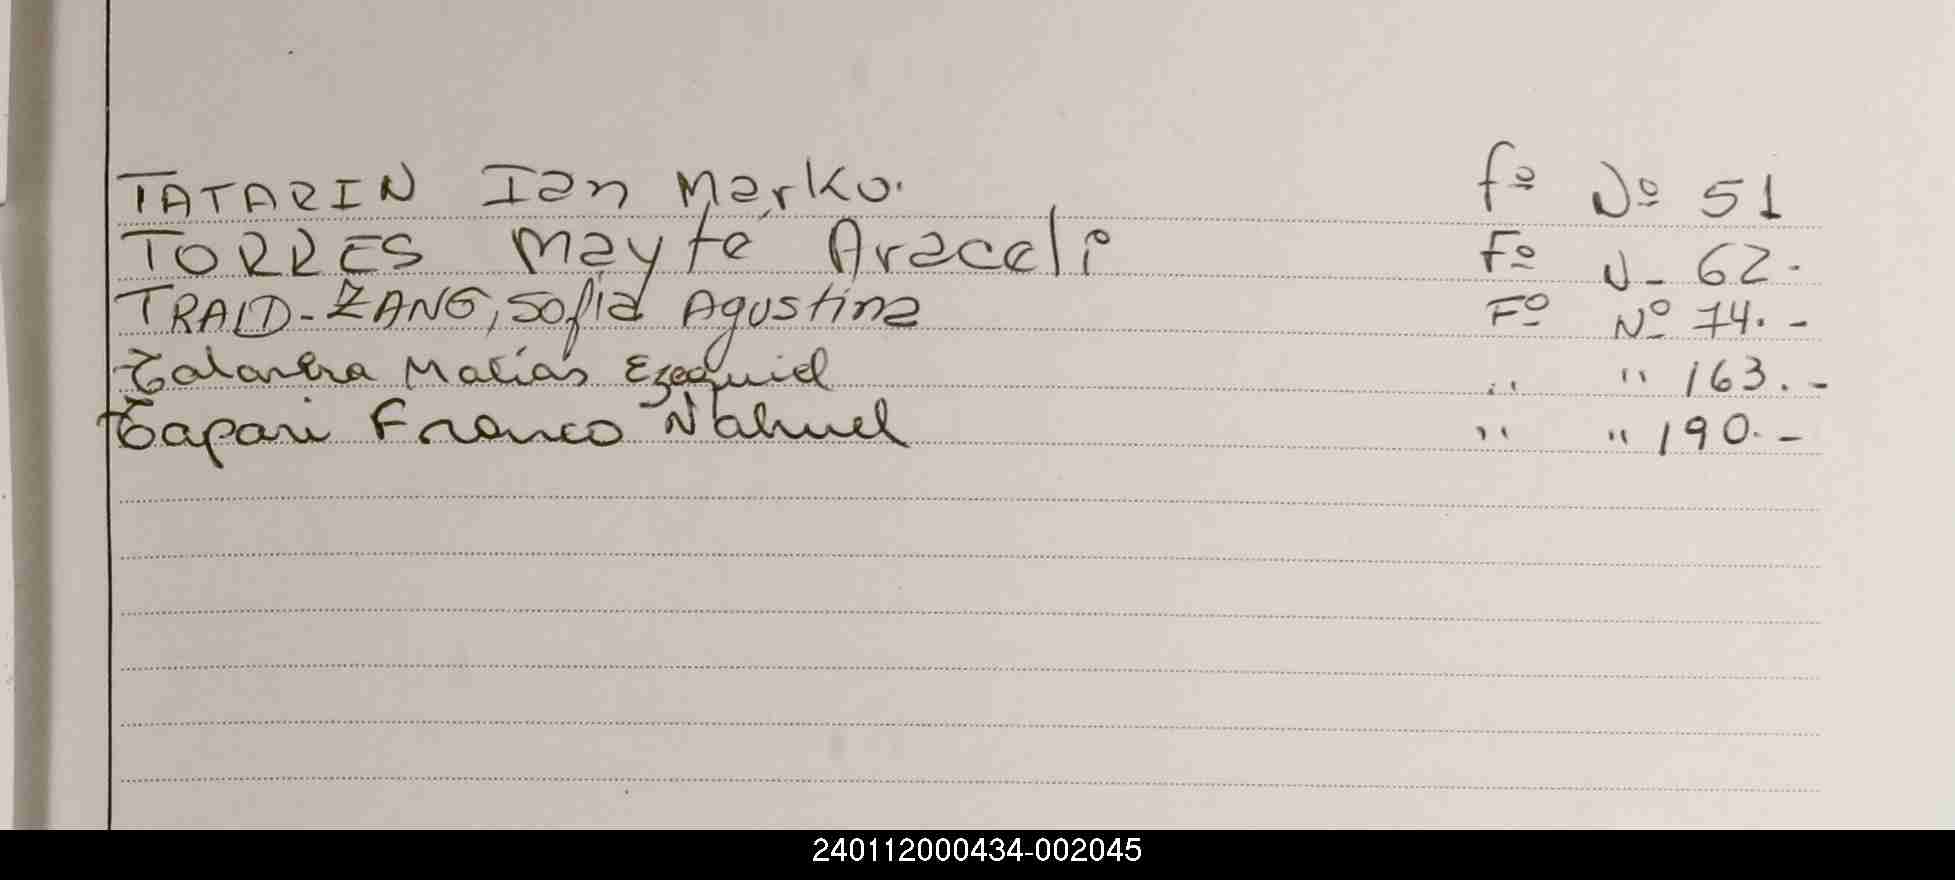 TATARIN Ian Marko. fº Nº 51
TORRES Mayte Araceli Fº N- 62.
TRAID-ZANG, Sofia Agustina Fº Nº 74.-
Talavera Matías Ezequiel '' '' 163.-
Tapari Franco Nahuel '' '' 190.-
240112000434-002045